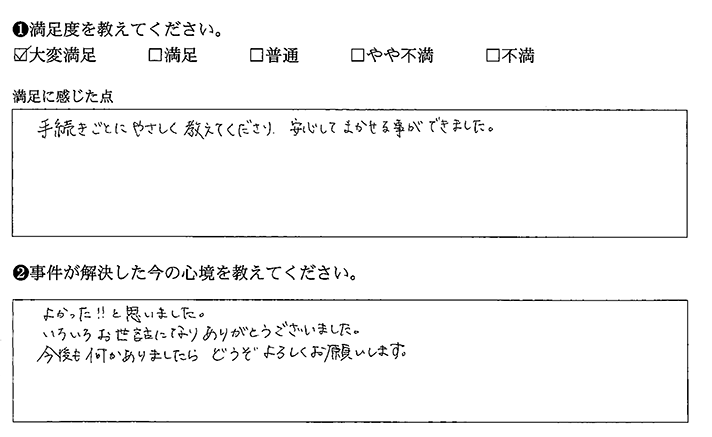 ❶満足度を教えてください。
☑大変満足 □満足 □普通 □やや不満 □不満
満足に感じた点
手続きごとにやさしく教えてくださり、安心してまかせる事ができました。
❷事件が解決した今の心境を教えてください。
よかった!!と思いました。
いろいろお世話になりありがとうございました。
今後も何かありましたら どうぞよろしくお願いします。